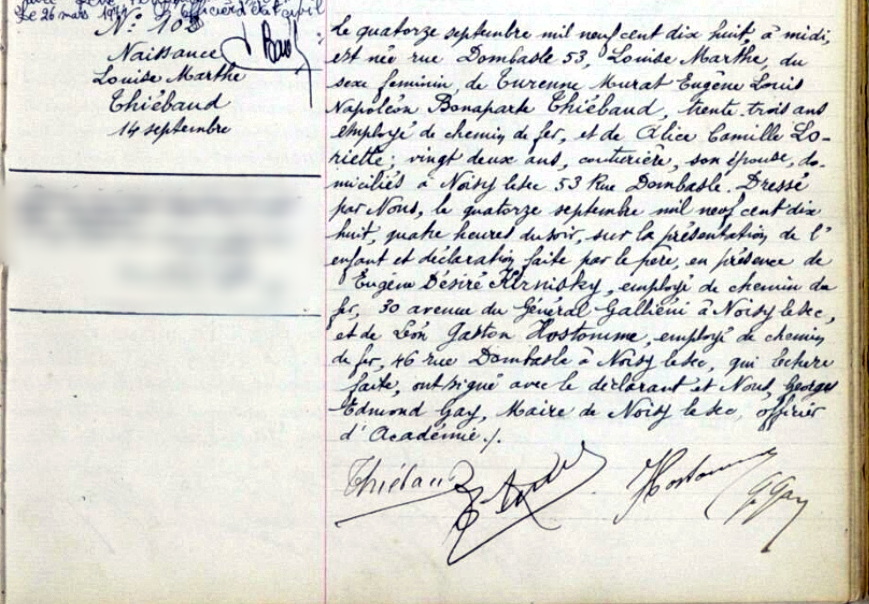 Le 26 mars
officier d'état civil
N°: 103
Naissance
Louise Marthe
Thiébaud
14 septembre
Le quatorze septembre mil neuf cent dix huit, à midi,
est née rue Dombasle 53, Louise Marthe, du
sexe feminin, de Turenne Murat Eugène Louis
Napoléon Bonaparte Thiébaud, trente-trois ans
employé de chemin de fer, et de Alice Camille Lo-
riette; vingt deux ans, couturière, son épouse, do-
miciliés à Noisy le sec 53 Rue Dombasle. Dressé
par Nous, le quatorze septembre mil neuf cent dix
huit, quatre heures du soir, sur la présentation de l'
enfant et déclaration faite par le père, en présence de
Eugène Désiré employé de chemin de
fer, 30 avenue du Général Galliéni à Noisy le sec,
et de Léon Gaston Hostomme, employé de chemin
de fer, 46 rue Dombasle à Noisy le sec, qui lecture
faite, ont signé avec le déclarant et Nous, Georges
Edmond Gay, Maire de Noisy le sec, officier
d'Académie ./.
Thiébaud Hostomme G Gay